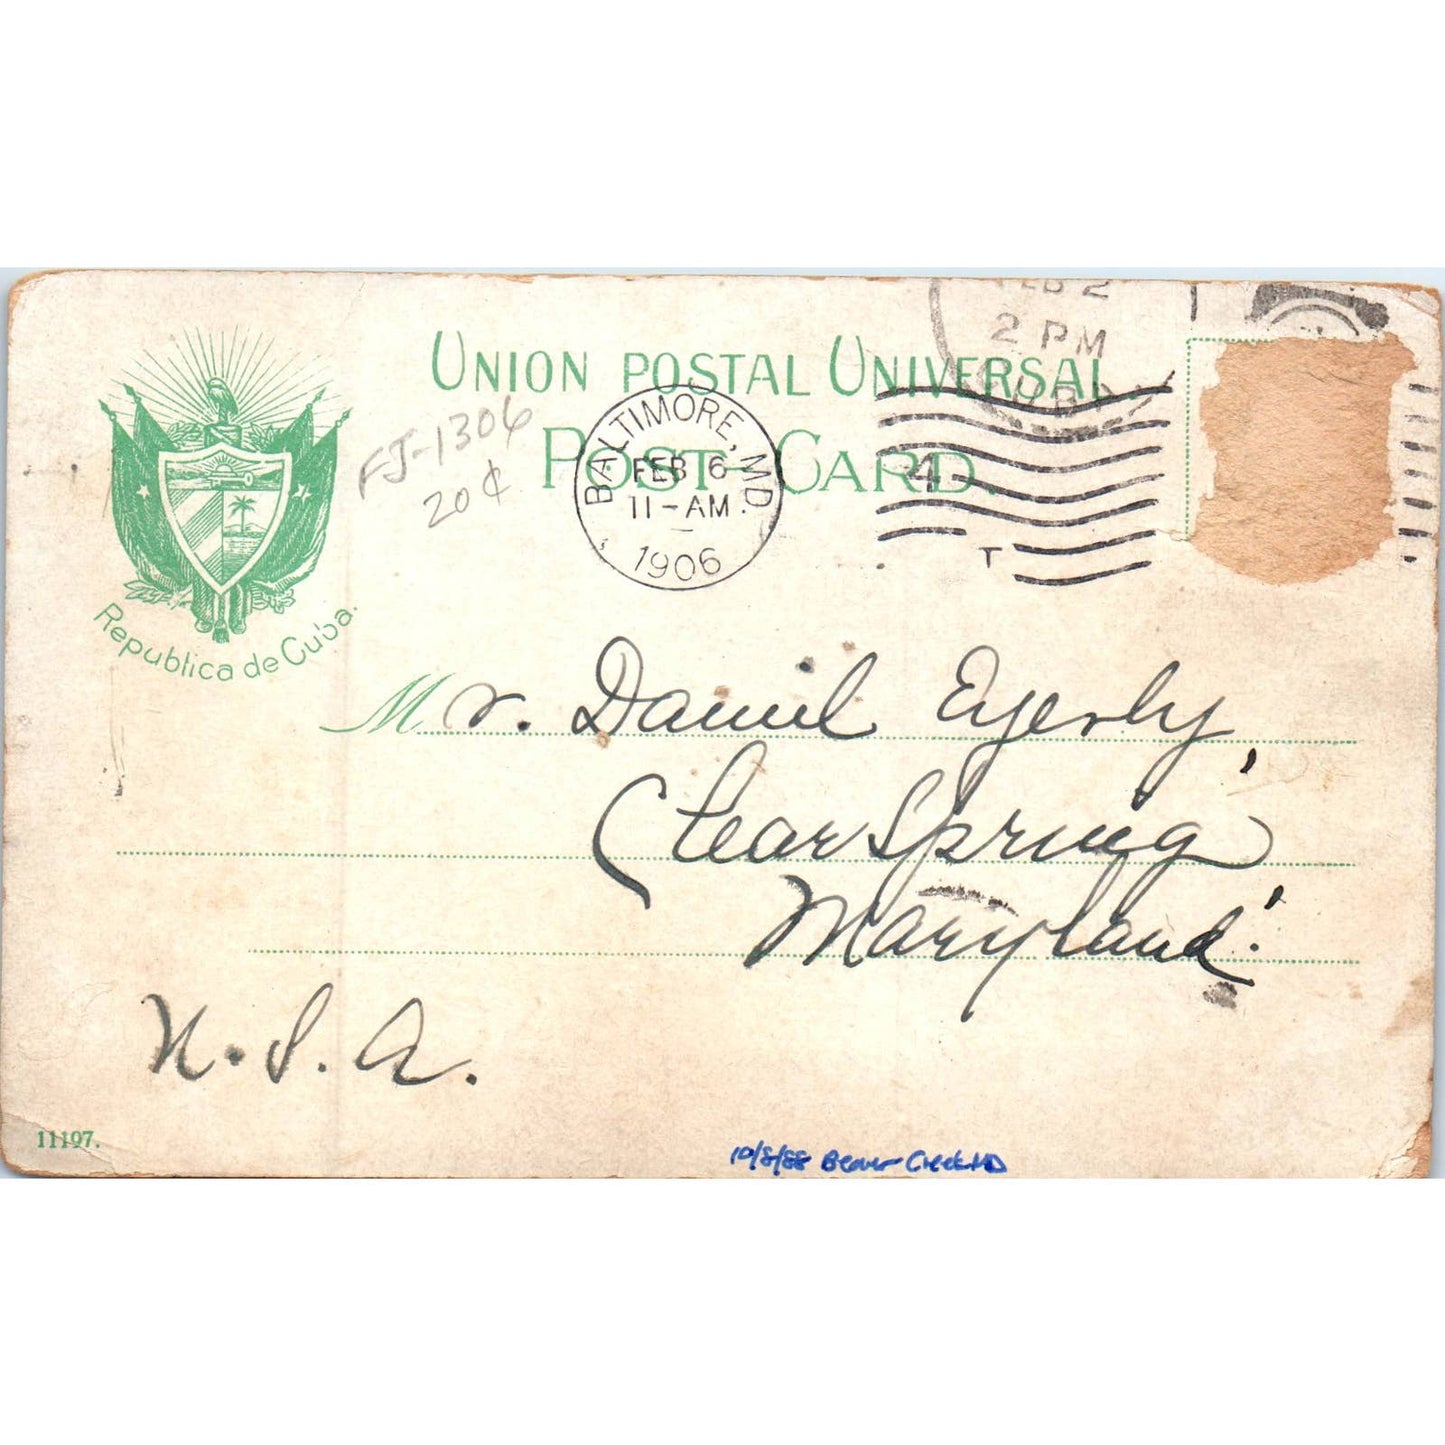 UNION POSTAL UNIVERSAL.
POST CARD.
FEB 2
2 PM
CUBA
BALTIMORE, MD.
FEB 6
11-AM
1906
4
T
FJ-1306
20¢
Republica de Cuba.
Mr. Daniel Eyerly,
Clear Spring,
Maryland.
U.S.A.
11197.
10/8/88 Beaver Creek MD